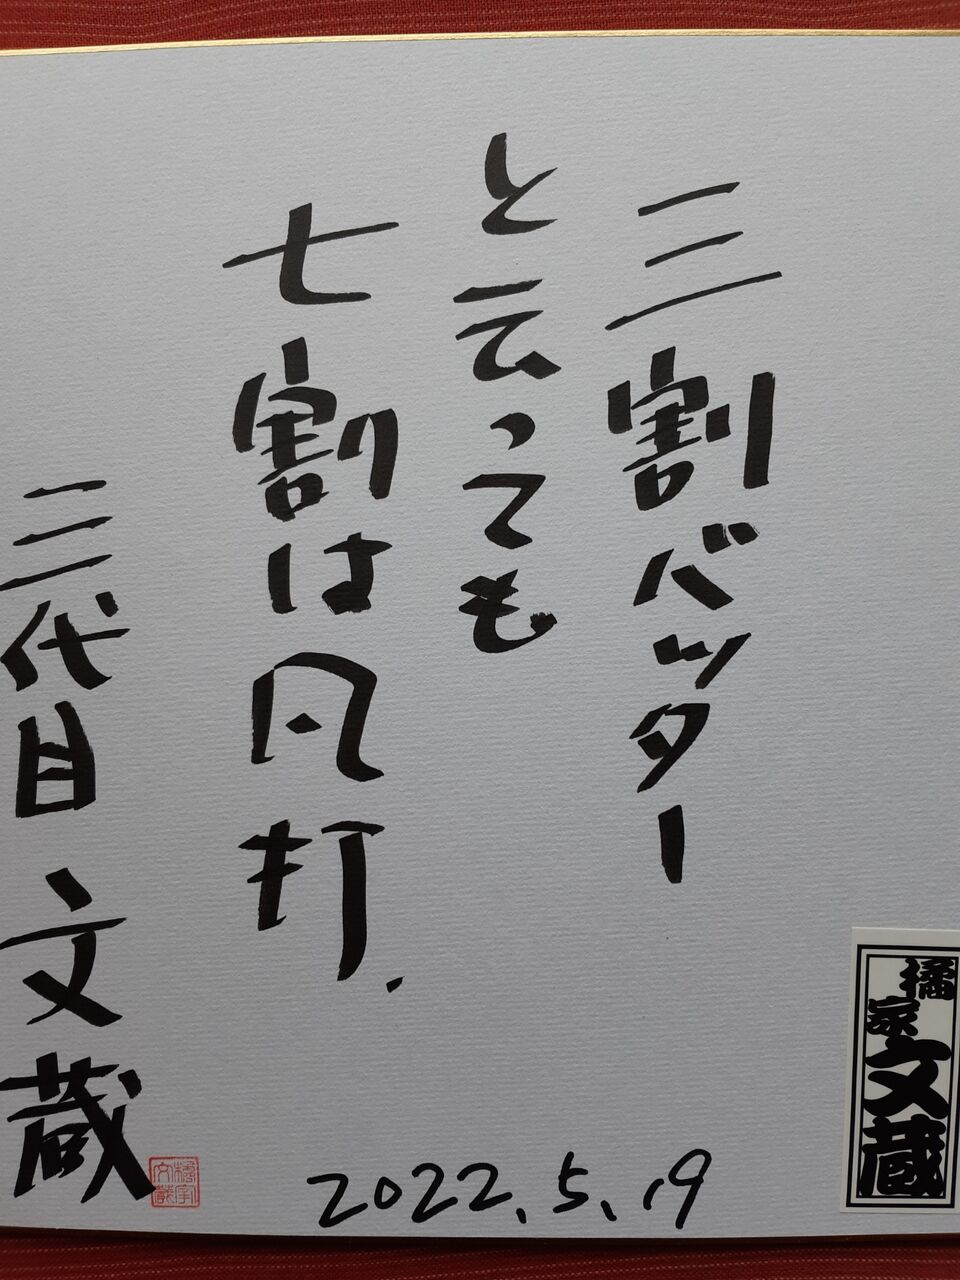 三割バッター
と云っても
七割は凡打.
三代目 文蔵
2022.5.19
橘家文蔵